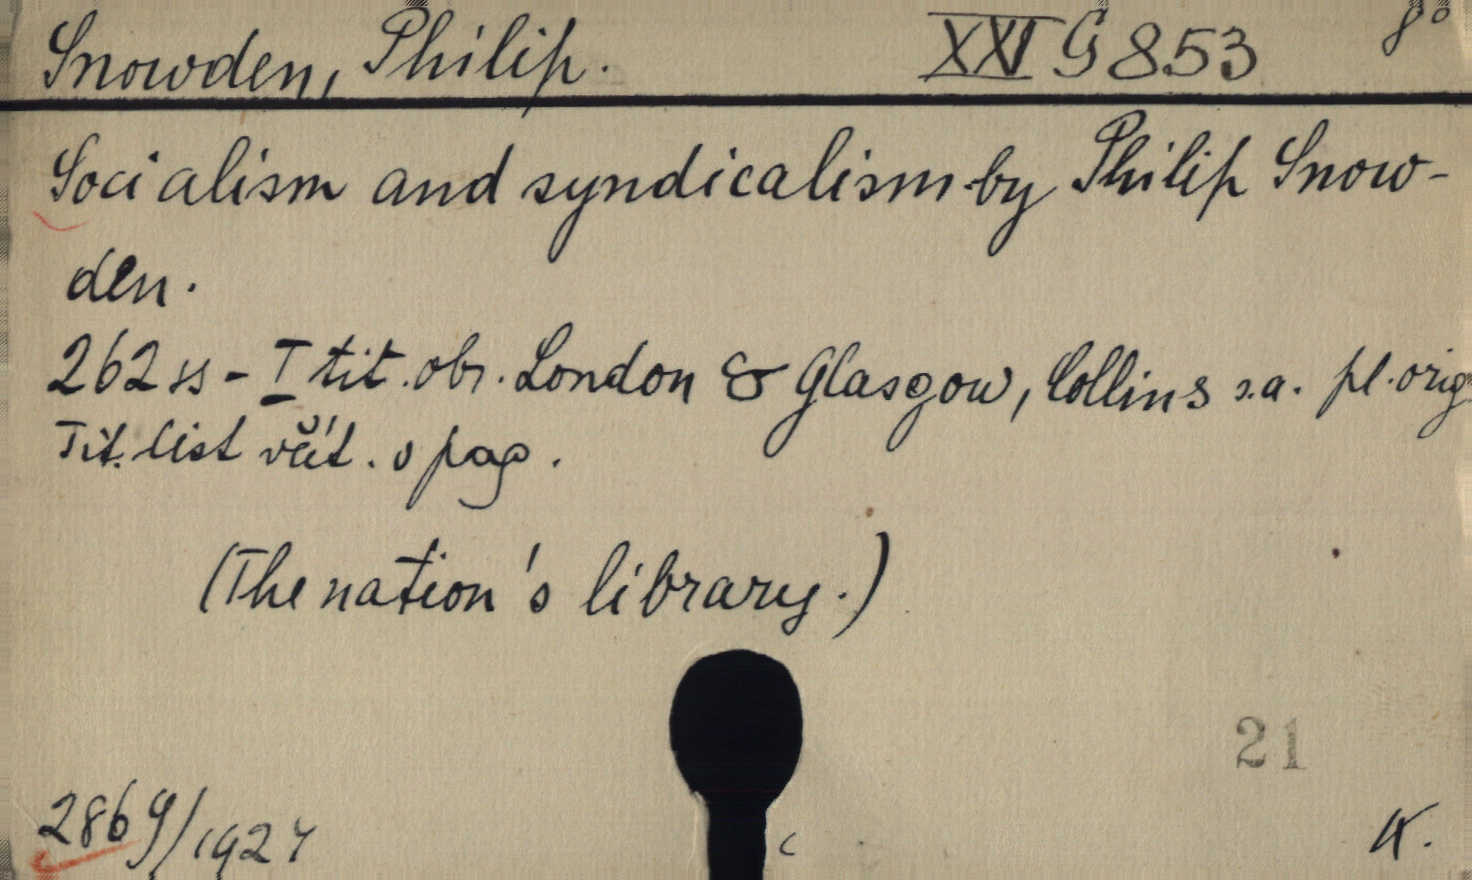 Snowden, Philip. XXI G 853 8°
Socialism and syndicalism by Philip Snow-
den.
262 ss - I tit. obr. London & Glasgow, Collins s.a. pl. orig.
Tit. list včít. v pag.
(The nation's library.)
21
2869/1927
K.